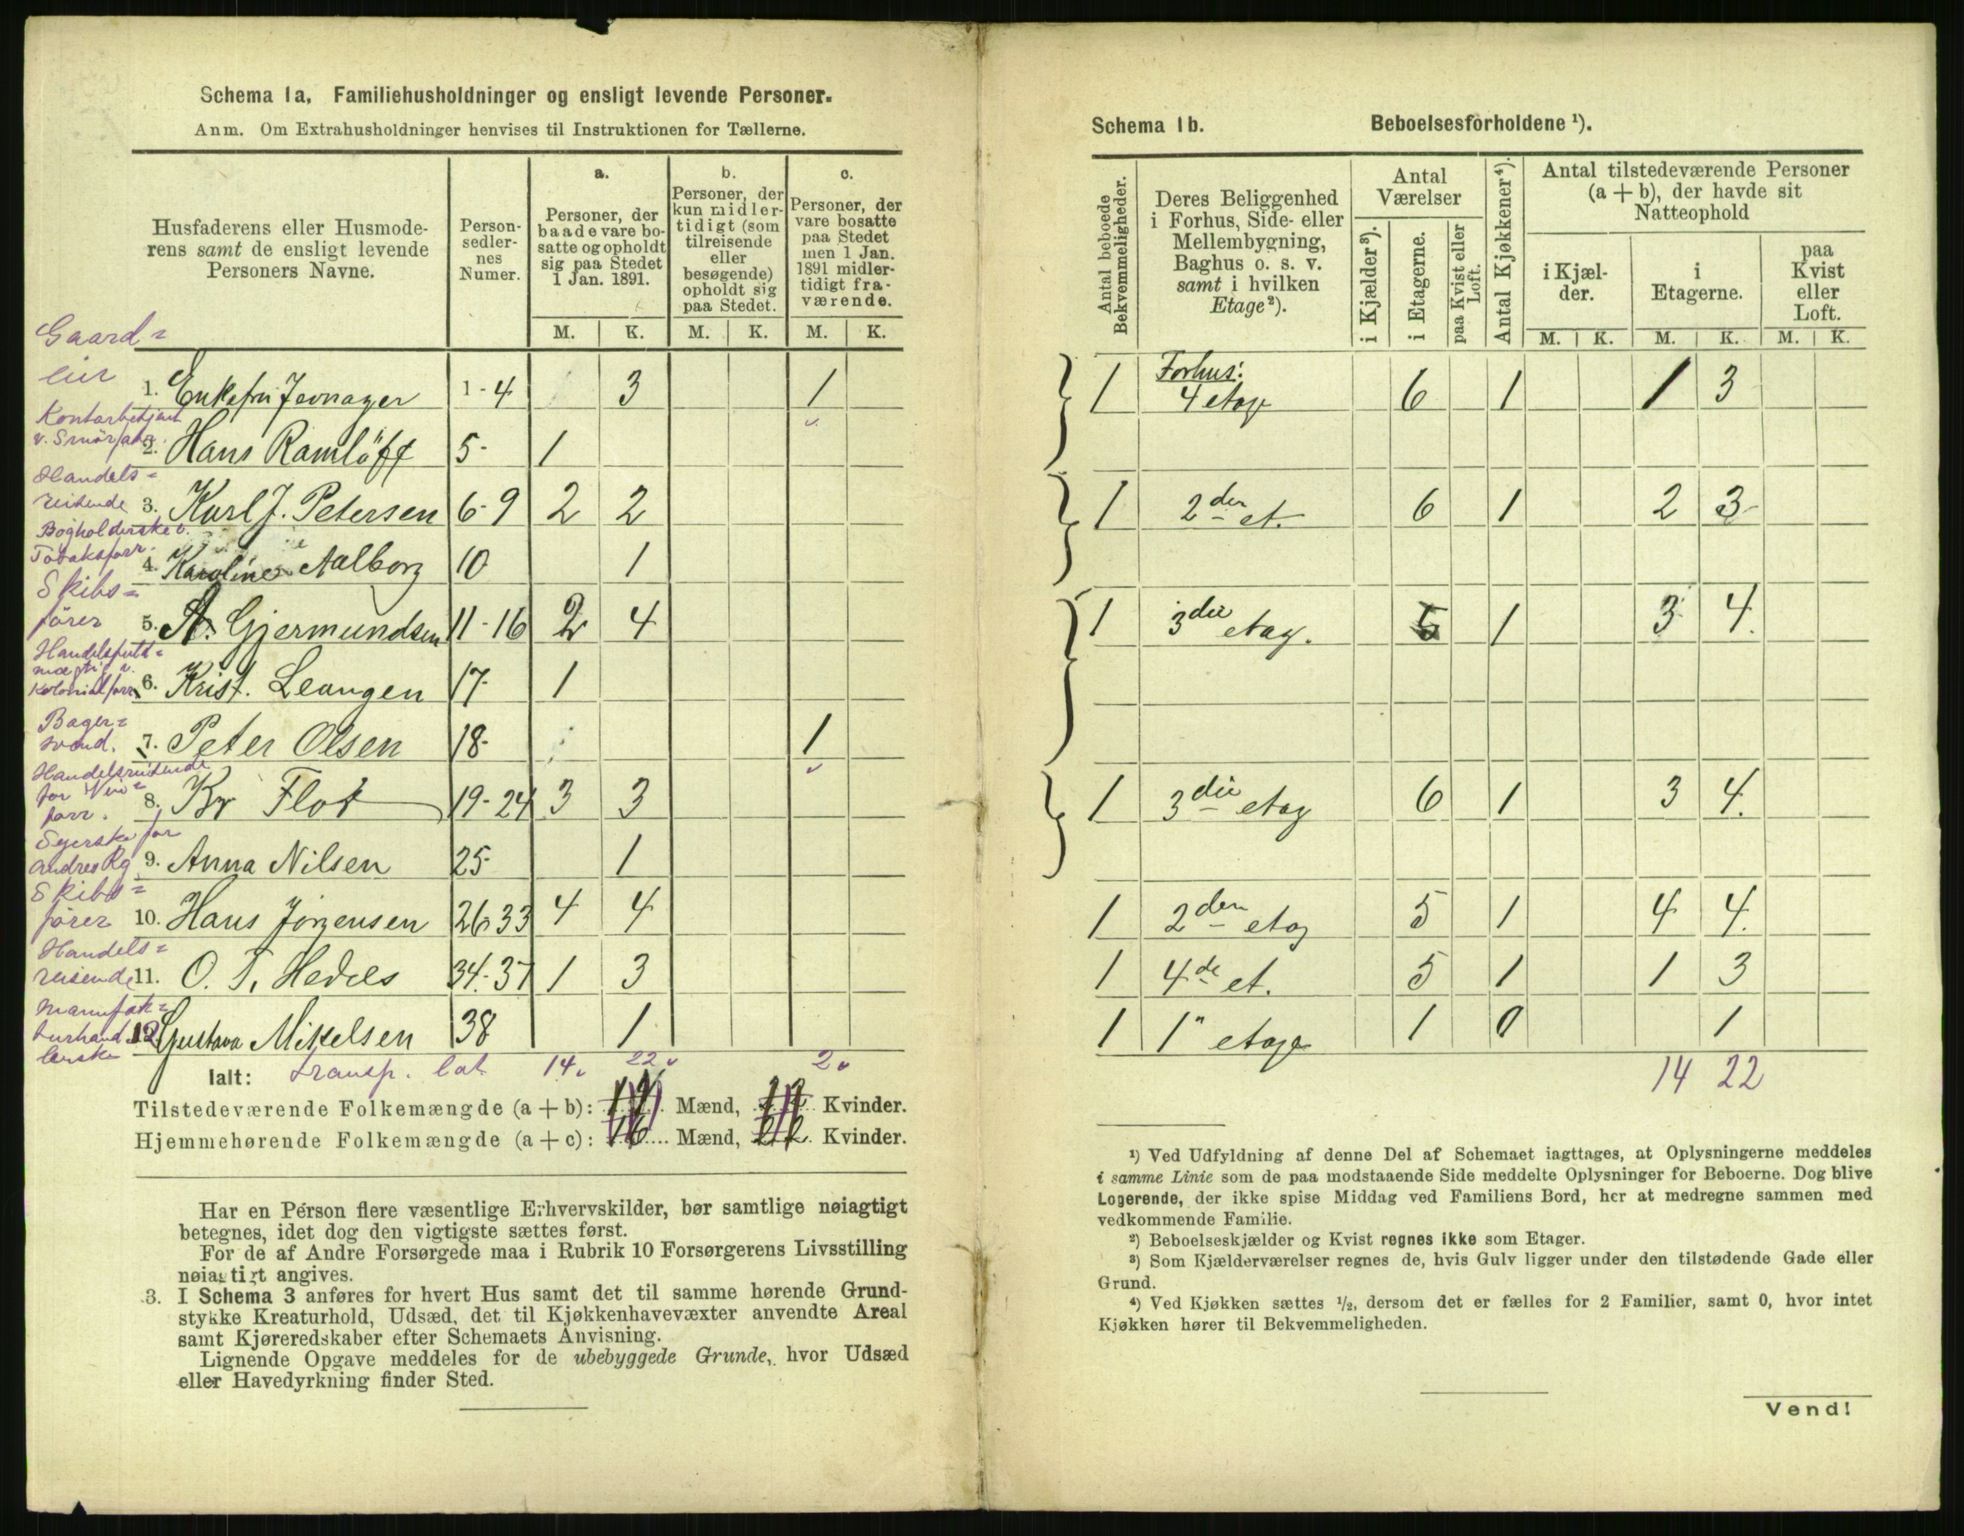 Schema 1a. Familiehusholdninger og ensligt levende Personer.
Anm. Om Extrahusholdninger henvises til Instruktionen for Tællerne.
Husfaderens eller Husmoderens samt de ensligt levende Personers Navne.
Personsedlernes Numer.
a.
Personer, der baade vare bosatte og opholdt sig paa Stedet 1 Jan. 1891.
b.
Personer, der kun midlertidigt (som tilreisende eller besøgende) opholdt sig paa Stedet.
c.
Personer, der vare bosatte paa Stedet men 1 Jan. 1891 midlertidigt fraværende.
M. K. M. K. M. K.
Gaard=
eier
1. Enkefru Jevnager 1-4 3 1
Kontorbetjent
v. Smörfabr.
2. Hans Ramlöff 5- 1
Handels=
reisende
3. Karl J. Petersen 6-9 2 2
Bogholderske i
Tobaksforr.
4. Karoline Aalborg 10 1
Skibs=
förer
5. A. Gjermundsen 11-16 2 4
Handelsfuld=
mægtig v.
Kolonialforr.
6. Krist. Leangen 17- 1
Bager=
svend.
7. Peter Olsen 18- 1
Handelsreisende
for Vin=
forr.
8. Kr Flot 19-24 3 3
Syerske for
andres Rg
9. Anna Nilsen 25- 1
Skibs=
förer
10. Hans Jörgensen 26-33 4 4
Handels=
reisende
11. O. T. Hedels 34-37 1 3
Manufak=
turhand=
lerske
12. Gustava Mikelsen 38 1
Ialt: transp. lat 14 22 2
Tilstedeværende Folkemængde (a + b): Mænd, Kvinder.
Hjemmehørende Folkemængde (a + c): 16 Mænd, 22 Kvinder.
Har en Person flere væsentlige Erhvervskilder, bør samtlige nøiagtigt
betegnes, idet dog den vigtigste sættes først.
For de af Andre Forsørgede maa i Rubrik 10 Forsørgerens Livsstilling
nøiagtigt angives.
3. I Schema 3 anføres for hvert Hus samt det til samme hørende Grund-
stykke Kreaturhold, Udsæd, det til Kjøkkenhavevæxter anvendte Areal
samt Kjøreredskaber efter Schemaets Anvisning.
Lignende Opgave meddeles for de ubebyggede Grunde, hvor Udsæd
eller Havedyrkning finder Sted.
Schema 1b. Beboelsesforholdene ¹).
Antal beboede Bekvemmeligheder.
Deres Beliggenhed i Forhus, Side- eller Mellembygning, Baghus o. s. v. samt i hvilken Etage²).
Antal Værelser
i Kjælder³).
i Etagerne.
paa Kvist eller Loft.
Antal Kjøkkener⁴).
Antal tilstedeværende Personer (a + b), der havde sit Natteophold
i Kjælder.
i Etagerne.
paa Kvist eller Loft.
M. K. M. K. M. K.
1 Forhus: 4 etage 6 1 1 3
1 2den et. 6 1 2 3
1 3die etag. 5 1 3 4.
1 3die etag 6 1 3 4.
1 2den etag 5 1 4 4.
1 4de et. 5 1 1 3
1 1" etage 1 0 1
14 22
¹) Ved Udfyldning af denne Del af Schemaet iagttages, at Oplysningerne meddeles
i samme Linie som de paa modstaaende Side meddelte Oplysninger for Beboerne. Dog blive
Logerende, der ikke spise Middag ved Familiens Bord, her at medregne sammen med
vedkommende Familie.
²) Beboelseskjælder og Kvist regnes ikke som Etager.
³) Som Kjælderværelser regnes de, hvis Gulv ligger under den tilstødende Gade eller
Grund.
⁴) Ved Kjøkken sættes ½, dersom det er fælles for 2 Familier, samt 0, hvor intet
Kjøkken hører til Bekvemmeligheden.
Vend!